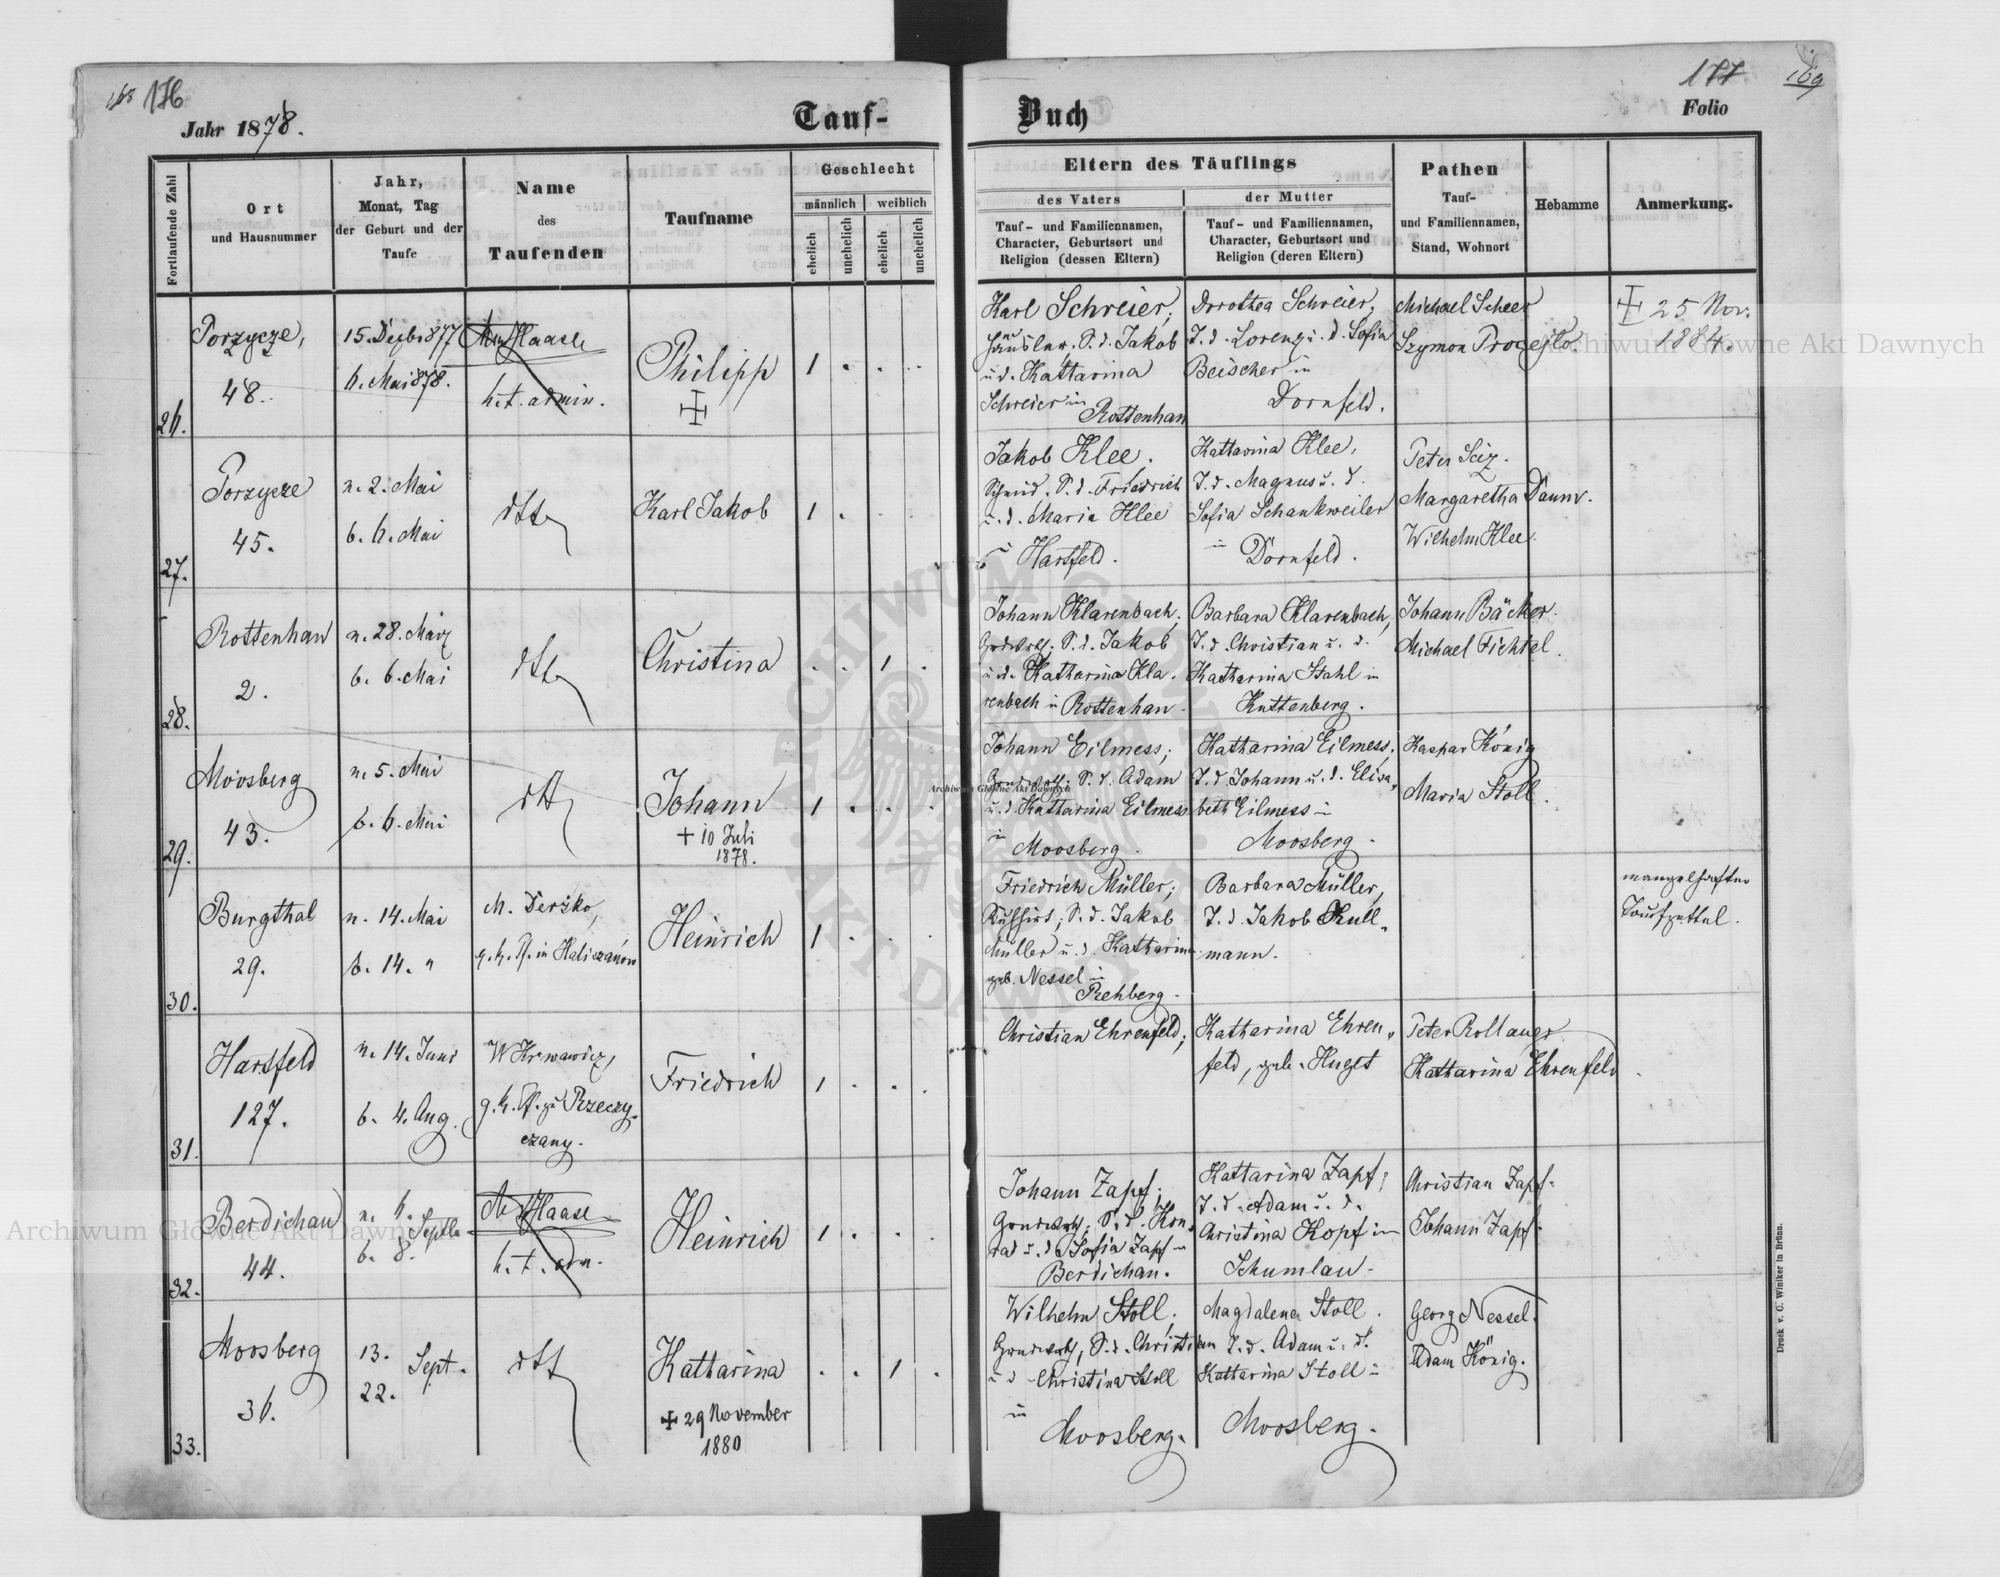 168 176
Jahr 1878.
Tauf-
Fortlaufende Zahl
Ort
und Hausnummer
Jahr,
Monat, Tag
der Geburt und der
Taufe
Name
des
Taufenden
Taufname
Geschlecht
männlich
weiblich
ehelich
unehelich
ehelich
unehelich
26.
Porzycze,
48.
15. Dezb. 1877
6. Mai 878.
Haase
h. t. admin.
Philipp
1 . . .
27.
Porzycze
45.
n. 2. Mai
b. 6. Mai
dtto
Karl Jakob
1 . . .
28.
Rottenhan
2.
n. 28. März
b. 6. Mai
dtto
Christina
. . 1 .
29.
Moosberg
43.
n. 5. Mai
b. 6. Mai
dtto
Johann
+ 10 Juli
1878.
1 . . .
30.
Burgthal
29.
n. 14. Mai
b. 14. "
M. Derżko,
g. k. Pf. in Haliczanów
Heinrich
1 . . .
31.
Hartfeld
127.
n. 14. Juni
b. 4. Aug.
g. k. Pf. zu Rzeczy-
czany.
Friedrich
1 . . .
32.
Berdichau
44.
n. 6.
b. 8. Septb.
Haase
h. t. adm.
Heinrich
1 . . .
33.
Moosberg
36.
13.
22. Sept.
dtto
Katharina
+ 29 November
1880
. . 1 .
177 169
Buch
Folio
Eltern des Täuflings
des Vaters
Tauf- und Familiennamen,
Character, Geburtsort und
Religion (dessen Eltern)
der Mutter
Tauf- und Familiennamen,
Character, Geburtsort und
Religion (deren Eltern)
Pathen
Tauf-
und Familiennamen,
Stand, Wohnort
Hebamme
Anmerkung.
Karl Schreier,
Häusler. S. d. Jakob
u. d. Kattarina
Schreier in
Rottenhan
Dorothea Schreier,
T. d. Lorenz u. d. Sofia
Beischer in
Dornfeld.
Michael Scheer
Szymon
25 Nov.
1884.
Jakob Klee.
Schmid. S. d. Friedrich
u. d. Maria Klee
in Hartfeld.
Kattarina Klee,
T. d. Magnus u. d.
Sofia Schankweiler
in Dornfeld.
Peter Seiz.
Margaretha Daum.
Wilhelm Klee.
Johann Klarenbach,
Grdwth. S. d. Jakob
u. d. Katharina Kla-
renbach in Rottenhan.
Barbara Klarenbach,
T. d. Christian u. d.
Katharina Stahl in
Kuttenberg.
Johann Bäcker.
Michael Fichtel.
Johann Eilmess;
Grndwth. S. d. Adam
u. d. Kattarina Eilmess
in
Moosberg.
Katharina Eilmess,
T. d. Johann u. d. Elisa-
beth Eilmess in
Moosberg.
Kaspar König
Maria Stoll.
Friedrich Müller;
S. d. Jakob
Müller u. d. Katharina
geb. Nessel in
Rehberg.
Barbara Müller,
T. d. Jakob Kull-
mann.
mangelhafter
Taufzettel.
Christian Ehrenfeld;
Katharina Ehren-
feld, geb. Huget
Peter Rollauer
Katharina Ehrenfeld.
Johann Zapf;
Grndwth; S. d. Kon-
rad u. d. Sofia Zapf in
Berdichau.
Kattarina Zapf;
T. d. Adam u. d.
Christina Kopf in
Schumlau.
Christian Zapf.
Johann Zapf.
Wilhelm Stoll;
Grndwth, S. d. Christian
u. d. Christina Stoll
in
Moosberg.
Magdalena Stoll.
T. d. Adam u. d.
Kattarina Stoll in
Moosberg.
Georg Nessel.
Adam König.
Druck v. C. Winiker in Brünn.
Archiwum Główne Akt Dawnych
Archiwum Główne Akt Dawnych
Archiwum Główne Akt Dawnych
ARCHIWUM GŁÓWNE AKT DAWNYCH